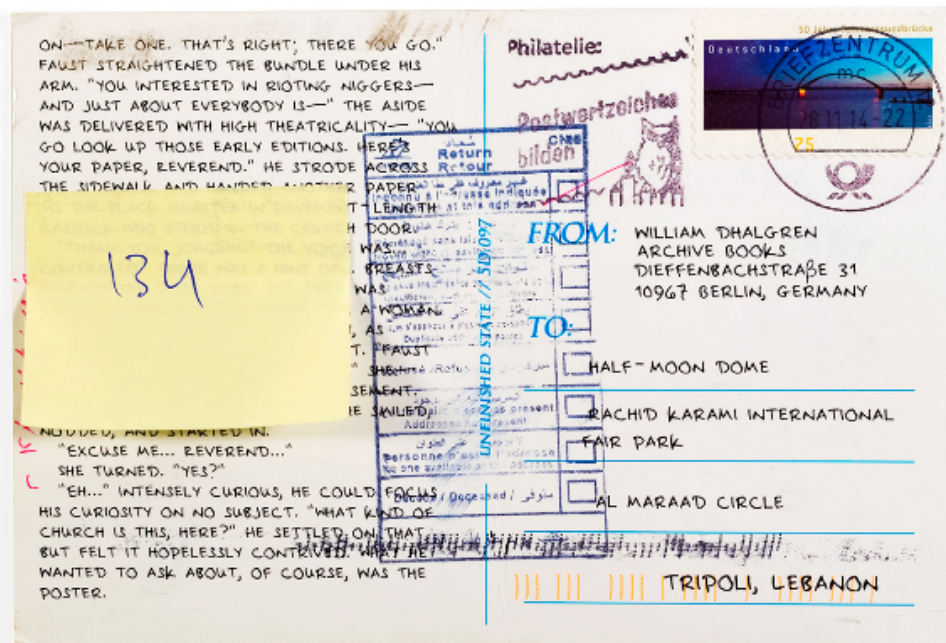 ON—TAKE ONE. THAT'S RIGHT; THERE YOU GO."
FAUST STRAIGHTENED THE BUNDLE UNDER HIS
ARM. "YOU INTERESTED IN RIOTING NIGGERS—
AND JUST ABOUT EVERYBODY IS—" THE ASIDE
WAS DELIVERED WITH HIGH THEATRICALITY— "YOU
GO LOOK UP THOSE EARLY EDITIONS. HERE'S
YOUR PAPER, REVEREND." HE STRODE ACROSS
THE SIDEWALK AND HANDED ANOTHER PAPER
T-LENGTH
DOOR.
WAS
BREASTS
WAS
A WOMAN.
, AS
T. "FAUST
" SHE
SEMENT.
HE SMILED,
NODDED, AND STARTED IN.
"EXCUSE ME... REVEREND..."
SHE TURNED. "YES?"
"EH..." INTENSELY CURIOUS, HE COULD FOCUS
HIS CURIOSITY ON NO SUBJECT. "WHAT KIND OF
CHURCH IS THIS, HERE?" HE SETTLED ON THAT
BUT FELT IT HOPELESSLY CONTRIVED. WHAT HE
WANTED TO ASK ABOUT, OF COURSE, WAS THE
POSTER.
134
UNFINISHED STATE // 5D.097
Return
Retour
Philatelie:
Postwertzeichen
bilden
Deutschland
75
BRIEFZENTRUM
28.11.14-22
FROM: WILLIAM DHALGREN
ARCHIVE BOOKS
DIEFFENBACHSTRAßE 31
10967 BERLIN, GERMANY
TO:
HALF-MOON DOME
RACHID KARAMI INTERNATIONAL
FAIR PARK
AL MARAAD CIRCLE
TRIPOLI, LEBANON